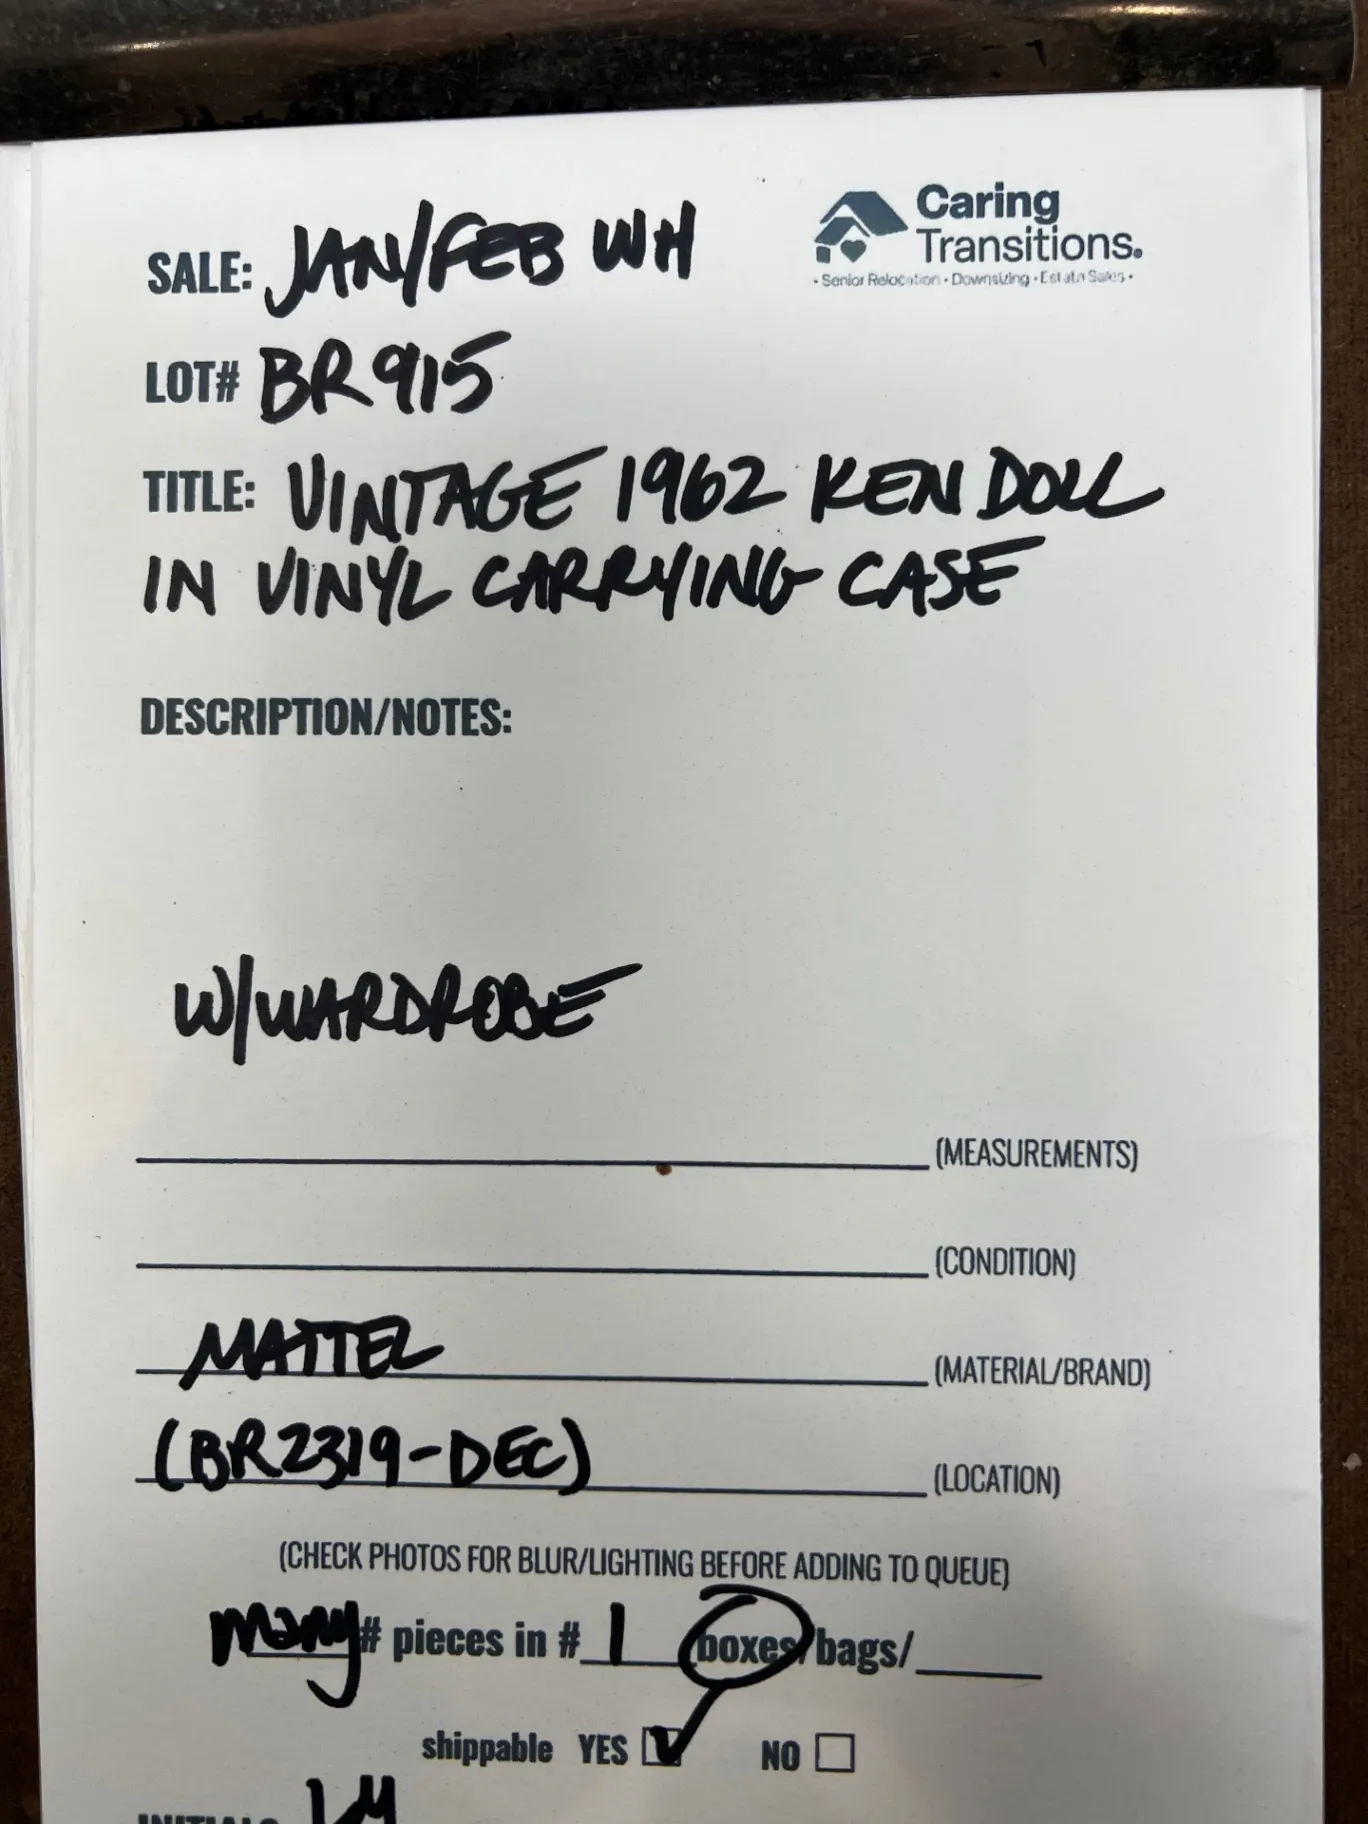 Caring
Transitions.
• Senior Relocation • Downsizing • Estate Sales •
SALE: JAN/FEB WH
LOT# BR915
TITLE: VINTAGE 1962 KEN DOLL
IN VINYL CARRYING CASE
DESCRIPTION/NOTES:
W/WARDROBE
(MEASUREMENTS)
(CONDITION)
MATTEL (MATERIAL/BRAND)
(BR2319-DEC) (LOCATION)
(CHECK PHOTOS FOR BLUR/LIGHTING BEFORE ADDING TO QUEUE)
many # pieces in # 1 boxes/bags/
shippable YES NO
INITIALS